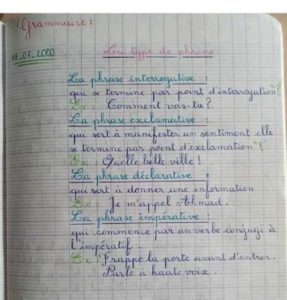 Grammaire :
18.07.2020
Les type de phrase
La phrase interrogative :
qui se termine par point d'interrogation "?"
Ex : Comment vas-tu ?
La phrase exclamative :
qui sert à manifester un sentiment elle
se termine par point d'exclamation "!"
Ex : Quelle belle ville !
La phrase déclarative :
qui sert à donner une information
Ex : Je m'appel Ahmad.
La phrase impérative :
qui commence par un verbe conjugé à
l'impératif.
Ex : Frappe la porte avant d'entrer.
Parle à haute voix.